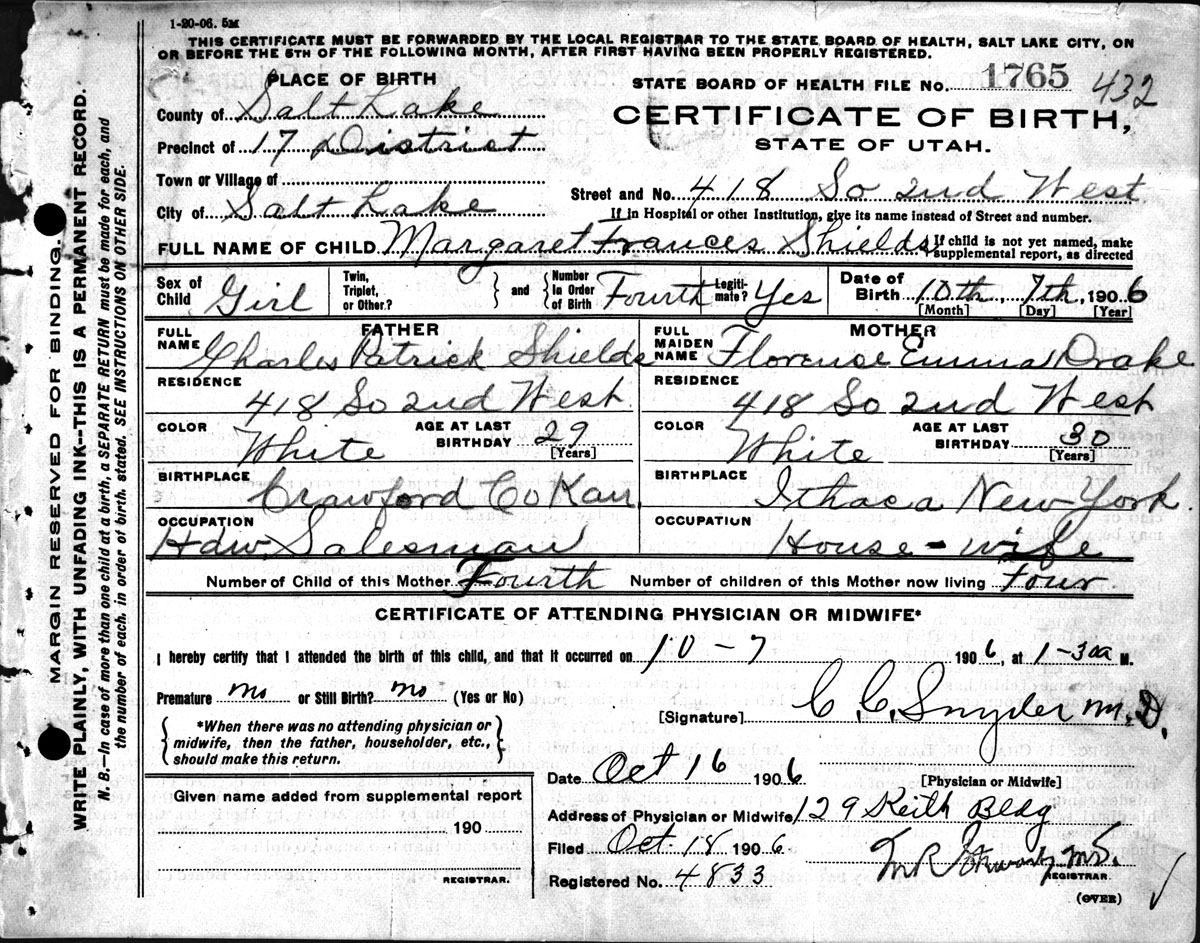 1-20-06. 5M
THIS CERTIFICATE MUST BE FORWARDED BY THE LOCAL REGISTRAR TO THE STATE BOARD OF HEALTH, SALT LAKE CITY, ON
OR BEFORE THE 5TH OF THE FOLLOWING MONTH, AFTER FIRST HAVING BEEN PROPERLY REGISTERED.
PLACE OF BIRTH
STATE BOARD OF HEALTH FILE No. 1765 432
County of Salt Lake
CERTIFICATE OF BIRTH,
Precinct of 17 District
STATE OF UTAH.
Town or Village of
Street and No. 418 So 2nd West
City of Salt Lake
If in Hospital or other Institution, give its name instead of Street and number.
FULL NAME OF CHILD Margaret Frances Shields
If child is not yet named, make
supplemental report, as directed
Sex of Child Girl
Twin, Triplet, or Other?
and
Number in Order of Birth Fourth
Legiti-mate? Yes
Date of Birth 10th, 7th, 1906
[Month] [Day] [Year]
FATHER
FULL NAME Charles Patrick Shields
RESIDENCE
418 So 2nd West
COLOR White
AGE AT LAST BIRTHDAY 29
[Years]
BIRTHPLACE
Crawford Co Kan.
OCCUPATION
Hdw. Salesman
MOTHER
FULL MAIDEN NAME Florense Emma Drake
RESIDENCE
418 So 2nd West
COLOR White
AGE AT LAST BIRTHDAY 30
[Years]
BIRTHPLACE
Ithaca New York.
OCCUPATION
House-wife
Number of Child of this Mother Fourth Number of children of this Mother now living Four
CERTIFICATE OF ATTENDING PHYSICIAN OR MIDWIFE*
I hereby certify that I attended the birth of this child, and that it occurred on 10-7 1906, at 1-30a M.
Premature no or Still Birth? no (Yes or No)
[Signature] C. C. Snyder M.D.
[Physician or Midwife]
*When there was no attending physician or
midwife, then the father, householder, etc.,
should make this return.
Given name added from supplemental report
190
REGISTRAR.
Date Oct 16 1906
Address of Physician or Midwife 129 Keith Bldg
Filed Oct. 18 1906
Registered No. 4833
M.D.
REGISTRAR.
(OVER)
MARGIN RESERVED FOR BINDING.
WRITE PLAINLY, WITH UNFADING INK--THIS IS A PERMANENT RECORD.
N. B.—In case of more than one child at a birth, a SEPARATE RETURN must be made for each, and
the number of each, in order of birth, stated. SEE INSTRUCTIONS ON OTHER SIDE.